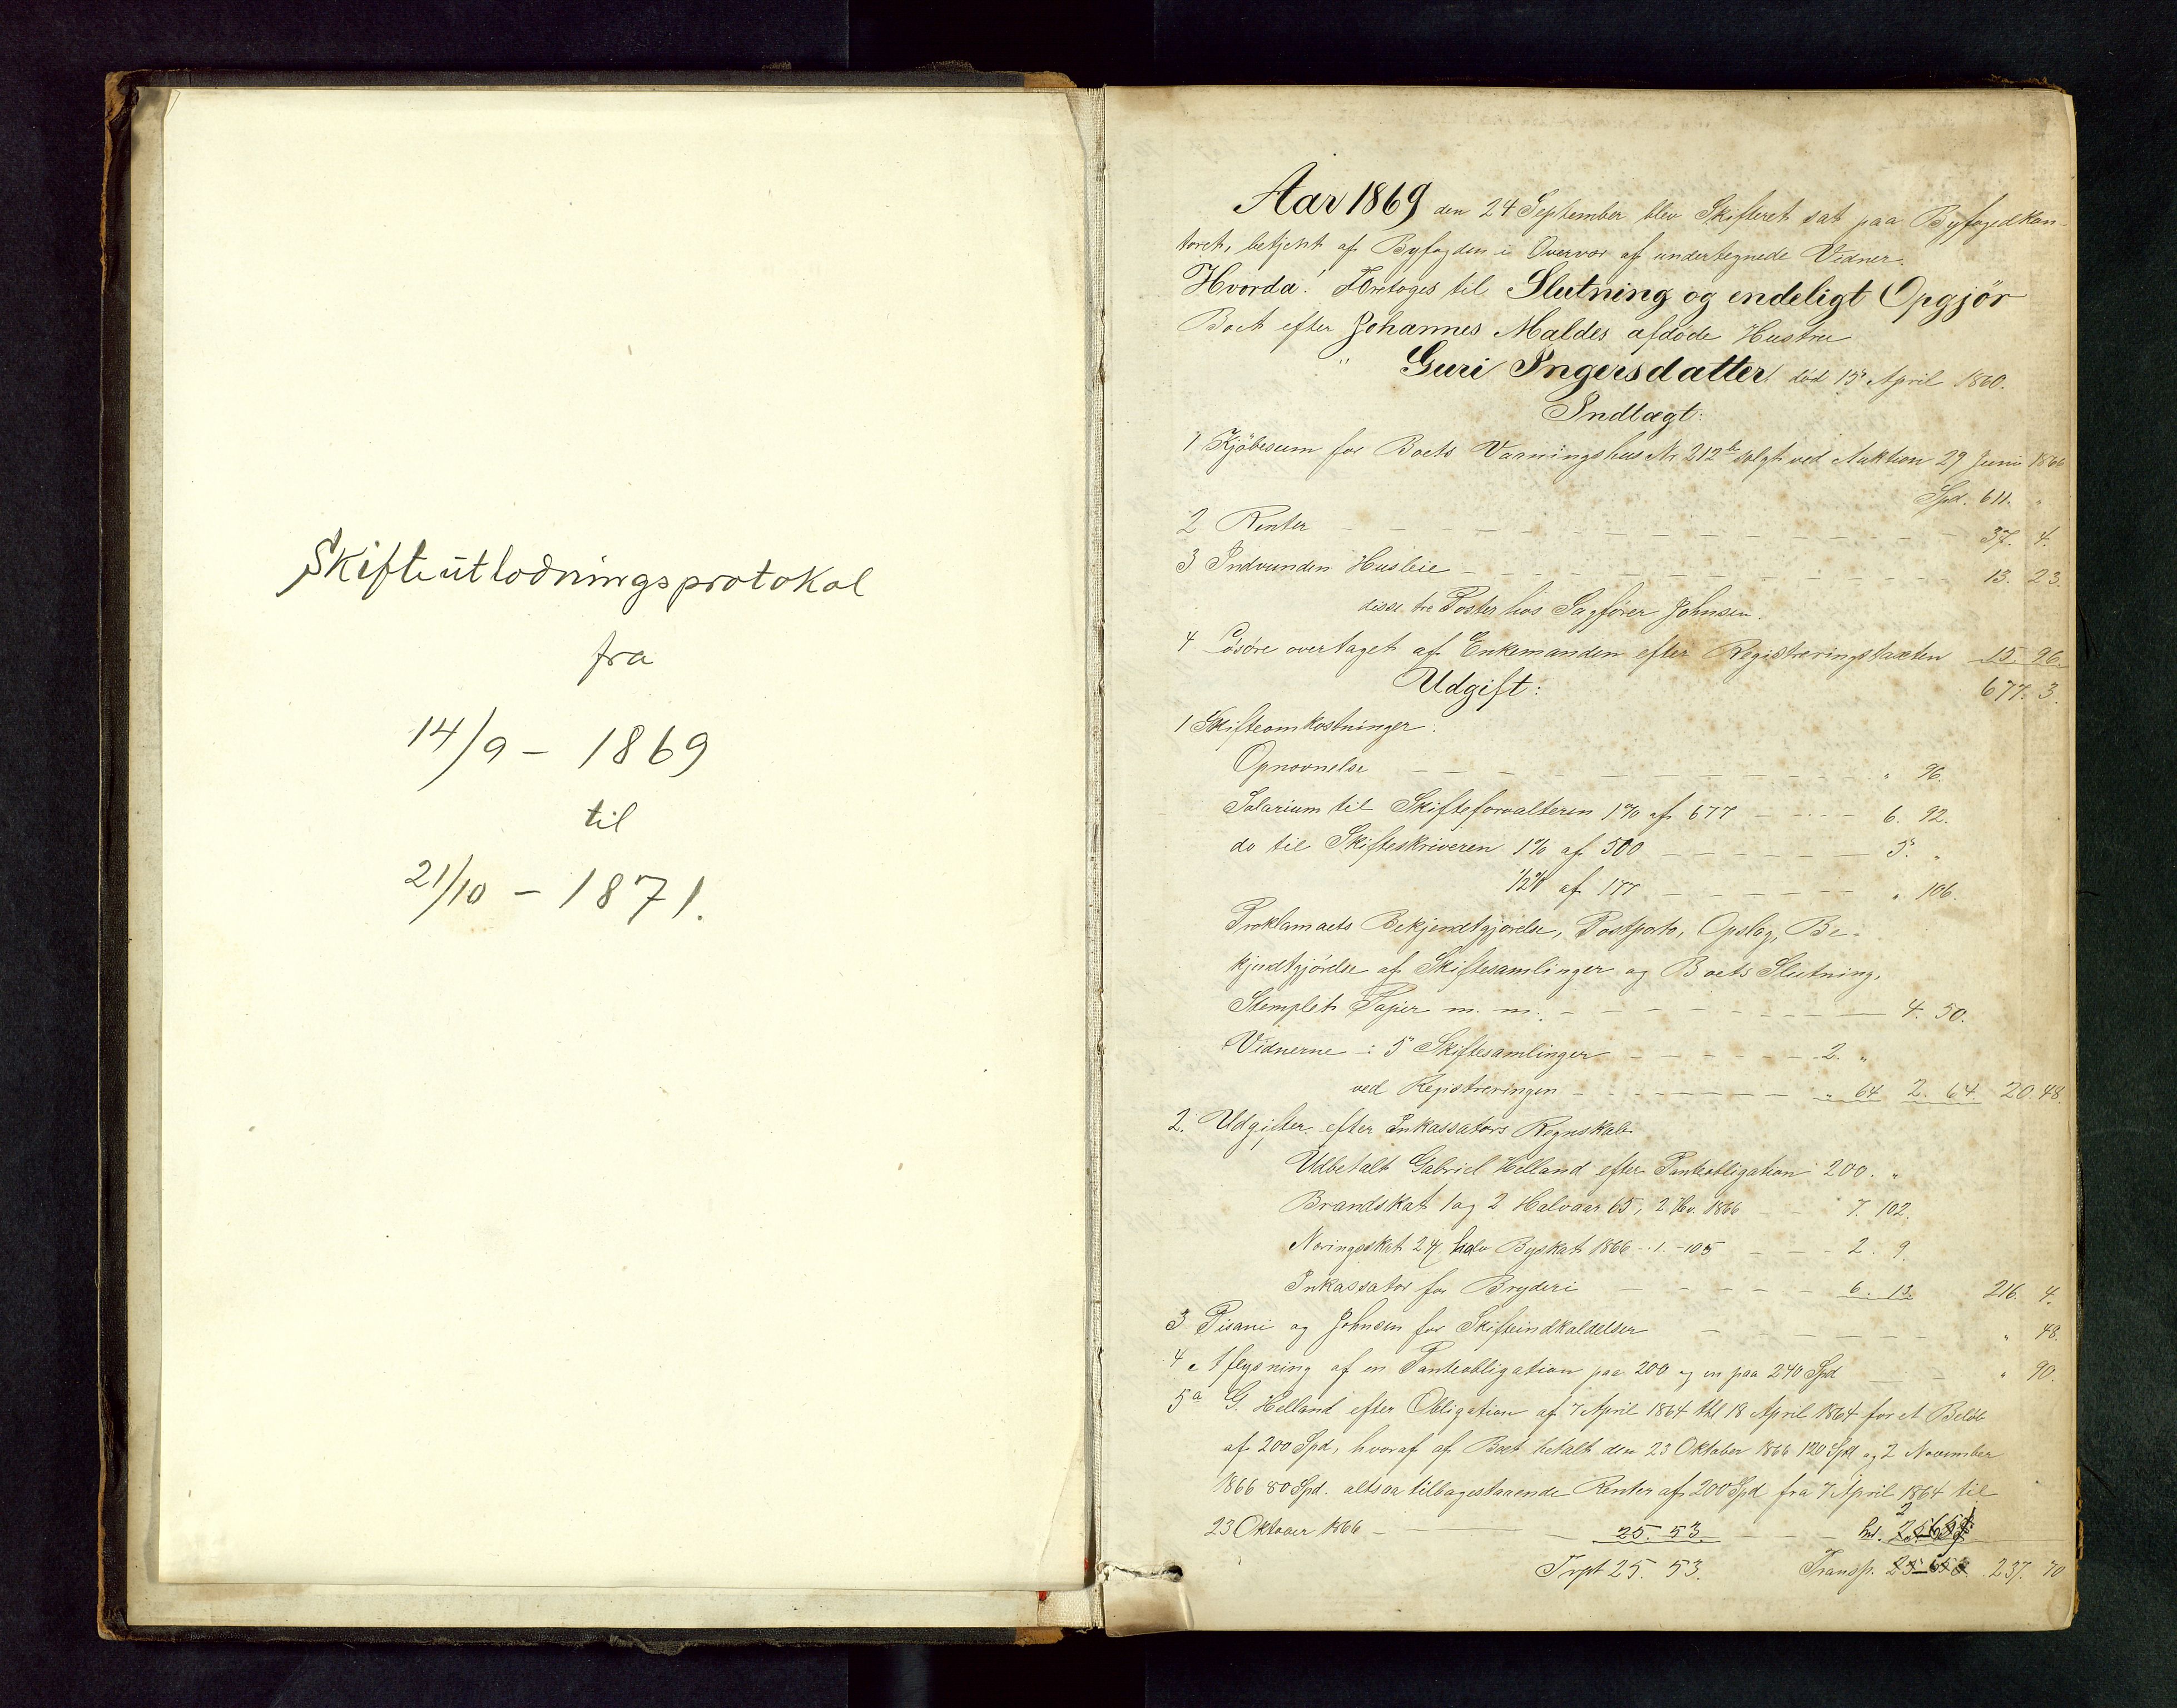 Skifteutlodningsprotokol
fra
14/9 – 1869
til
21/10 – 1871.
Aar 1869 den 24 September blev Skifteret sat paa Byfogedkon-
toret, betjent af Byfogden i Overvær af undertegnede Vidner.
Hvorda! Foretoges til Slutning og endeligt Opgjör
Boet efter Johannes Maldes afdöde Hustru
" Guri Ingersdatter död 15 April 1860.
Indtægt:
1 Kjöbesum for Boets Vaaningshus Nr 212b solgt ved Auktion 29 Juni 1866
Spd. 611. "
2 Renter – – – 37. 4.
3 Indvunden Husleie – – – 13. 23.
disse tre Poster hos Sagförer Johnsen.
4 Lösöre overtaget af Enkemanden efter Registreringstaxten 15. 96.
Udgift: 677. 3.
1 Skifteomkostninger:
Opnævnelse – – – " 96.
Salarium til Skifteforvalteren 1% af 677 – – – 6. 92.
do til Skifteskriveren 1% af 500 – – – 5. "
1/2% af 177 – – – " 106.
Proklamaets Bekjendtgjörelse, Postporto, Opslag, Be-
kjendtgjörelse af Skiftesamlinger og Boets Slutning,
Stemplet Papir m. m. – – – 4. 50.
Vidnerne i 5 Skiftesamlinger – – – 2. "
ved Registreringen – – – " 64 2. 64. 20. 48.
2. Udgifter efter Inkassators Regnskab
Udbetalt Gabriel Helland efter Panteobligation 200. "
Brandskat 1 og 2 Halvaar 65, 2 Hv. 1866 – – 7. 102.
Næringsskat 24, halv Byskat 1866 – 1. – 105 – – – 2. 9.
Inkassator for Bryderi – – – 6. 13. 216. 4.
3 Pisani og Johnsen for Skifteindkaldelser – – – " 48.
4 Aflysning af en Panteobligation paa 200 og en paa 240 Spd – – " 90.
5a G. Helland efter Obligation af 7 April 1864 thl 18 April 1864 for et Belöb
af 200 Spd, hvoraf af Boet betalt den 23 Oktober 1866 120 Spd og 2 November
1866 80 Spd. altsaa tilbagestaaende Renter af 200 Spd fra 7 April 1864 til
23 Oktober 1866 – – – 25. 53.
Trpt 25. 53. Transp. 237. 70